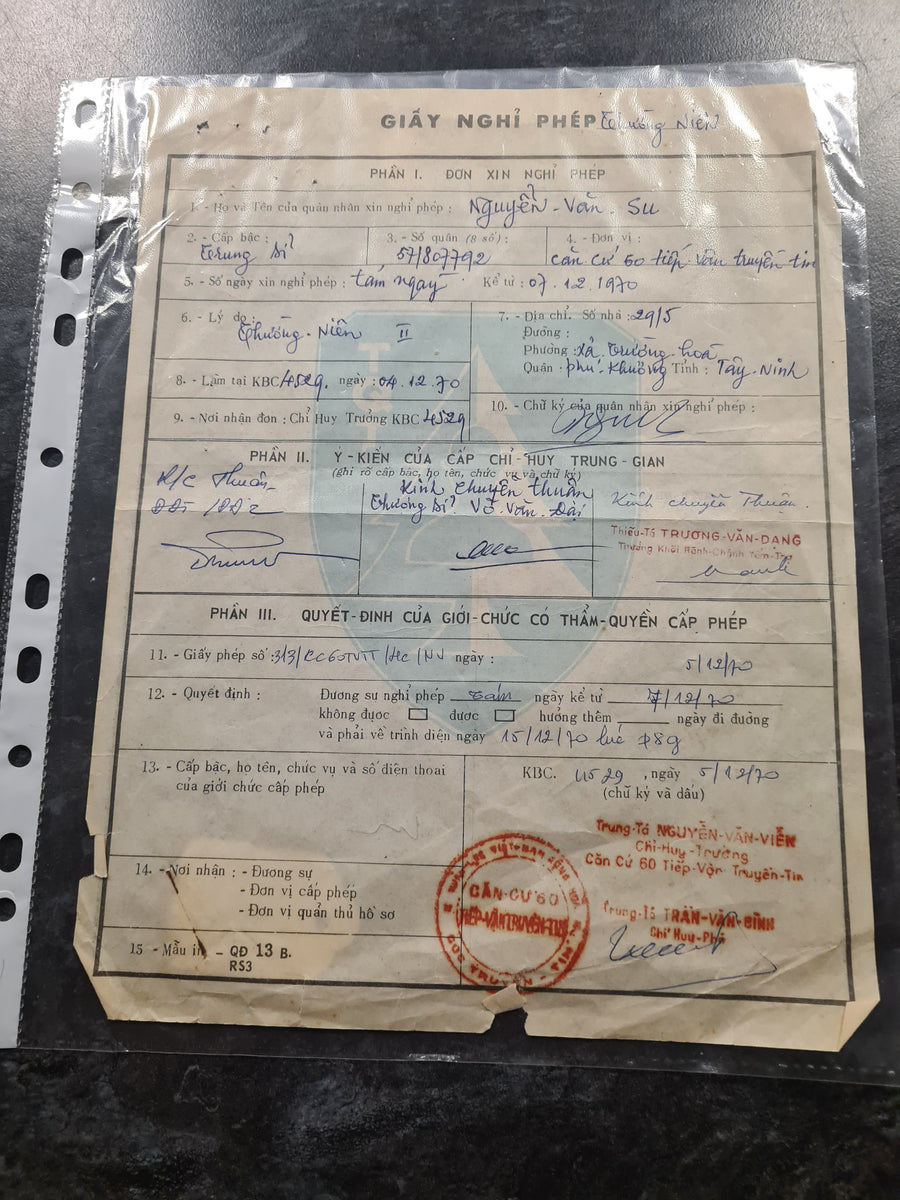 GIẤY NGHỈ PHÉP Thường Niên
PHẦN I. ĐƠN XIN NGHỈ PHÉP
1. - Họ và Tên của quân nhân xin nghỉ phép : Nguyễn - Văn - Su
2. - Cấp bậc : 3. - Số quân (8 số) : 4. - Đơn vị :
Trung sĩ 57/807792 Căn cứ 60 tiếp vận truyền tin
5. - Số ngày xin nghỉ phép : tám ngày Kể từ : 07.12.1970
6. - Lý do : Thường - Niên II
7. - Địa chỉ. Số nhà : 29/5
Đường :
Phường : xã Trường hoà
Quận : phú - Khương Tỉnh : Tây - Ninh
8. - Làm tại KBC 4529. ngày : 04.12.70
9. - Nơi nhận đơn : Chỉ Huy Trưởng KBC 4529
10. - Chữ ký của quân nhân xin nghỉ phép :
PHẦN II. Ý-KIẾN CỦA CẤP CHỈ-HUY TRUNG-GIAN
(ghi rõ cấp bậc, họ tên, chức vụ và chữ ký)
K/C Thuận
Kính chuyển thuận
Thượng sĩ Võ Văn Đại
Kính chuyển Thuận.
Thiếu-Tá TRƯƠNG-VĂN-DANG
Trưởng Khối Hành-Chánh
PHẦN III. QUYẾT-ĐỊNH CỦA GIỚI-CHỨC CÓ THẨM-QUYỀN CẤP PHÉP
11. - Giấy phép số : 313/CC60TVTT/HC/NV ngày : 5/12/70
12. - Quyết định : Đương sự nghỉ phép tám ngày kể từ 7/12/70
không được được hưởng thêm ngày đi đường
và phải về trình diện ngày 15/12/70 lúc 08g
13. - Cấp bậc, họ tên, chức vụ và số điện thoại
của giới chức cấp phép
KBC. 4529 , ngày 5/12/70
(chữ ký và dấu)
Trung-Tá NGUYỄN-VĂN-VIỄN
Chỉ-Huy-Trưởng
Căn Cứ 60 Tiếp-Vận Truyền-Tin
Trung-Tá TRẦN-VĂN-BÌNH
Chỉ Huy-Phó
CĂN-CỨ 60
TIẾP-VẬN TRUYỀN-TIN
14. - Nơi nhận : - Đương sự
- Đơn vị cấp phép
- Đơn vị quản thủ hồ sơ
15 - Mẫu in - QĐ 13 B.
RS3